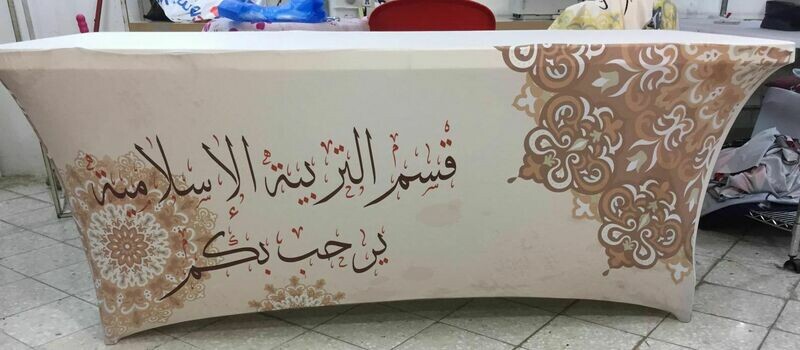 قسم التربية الإسلامية
يرحب بكم